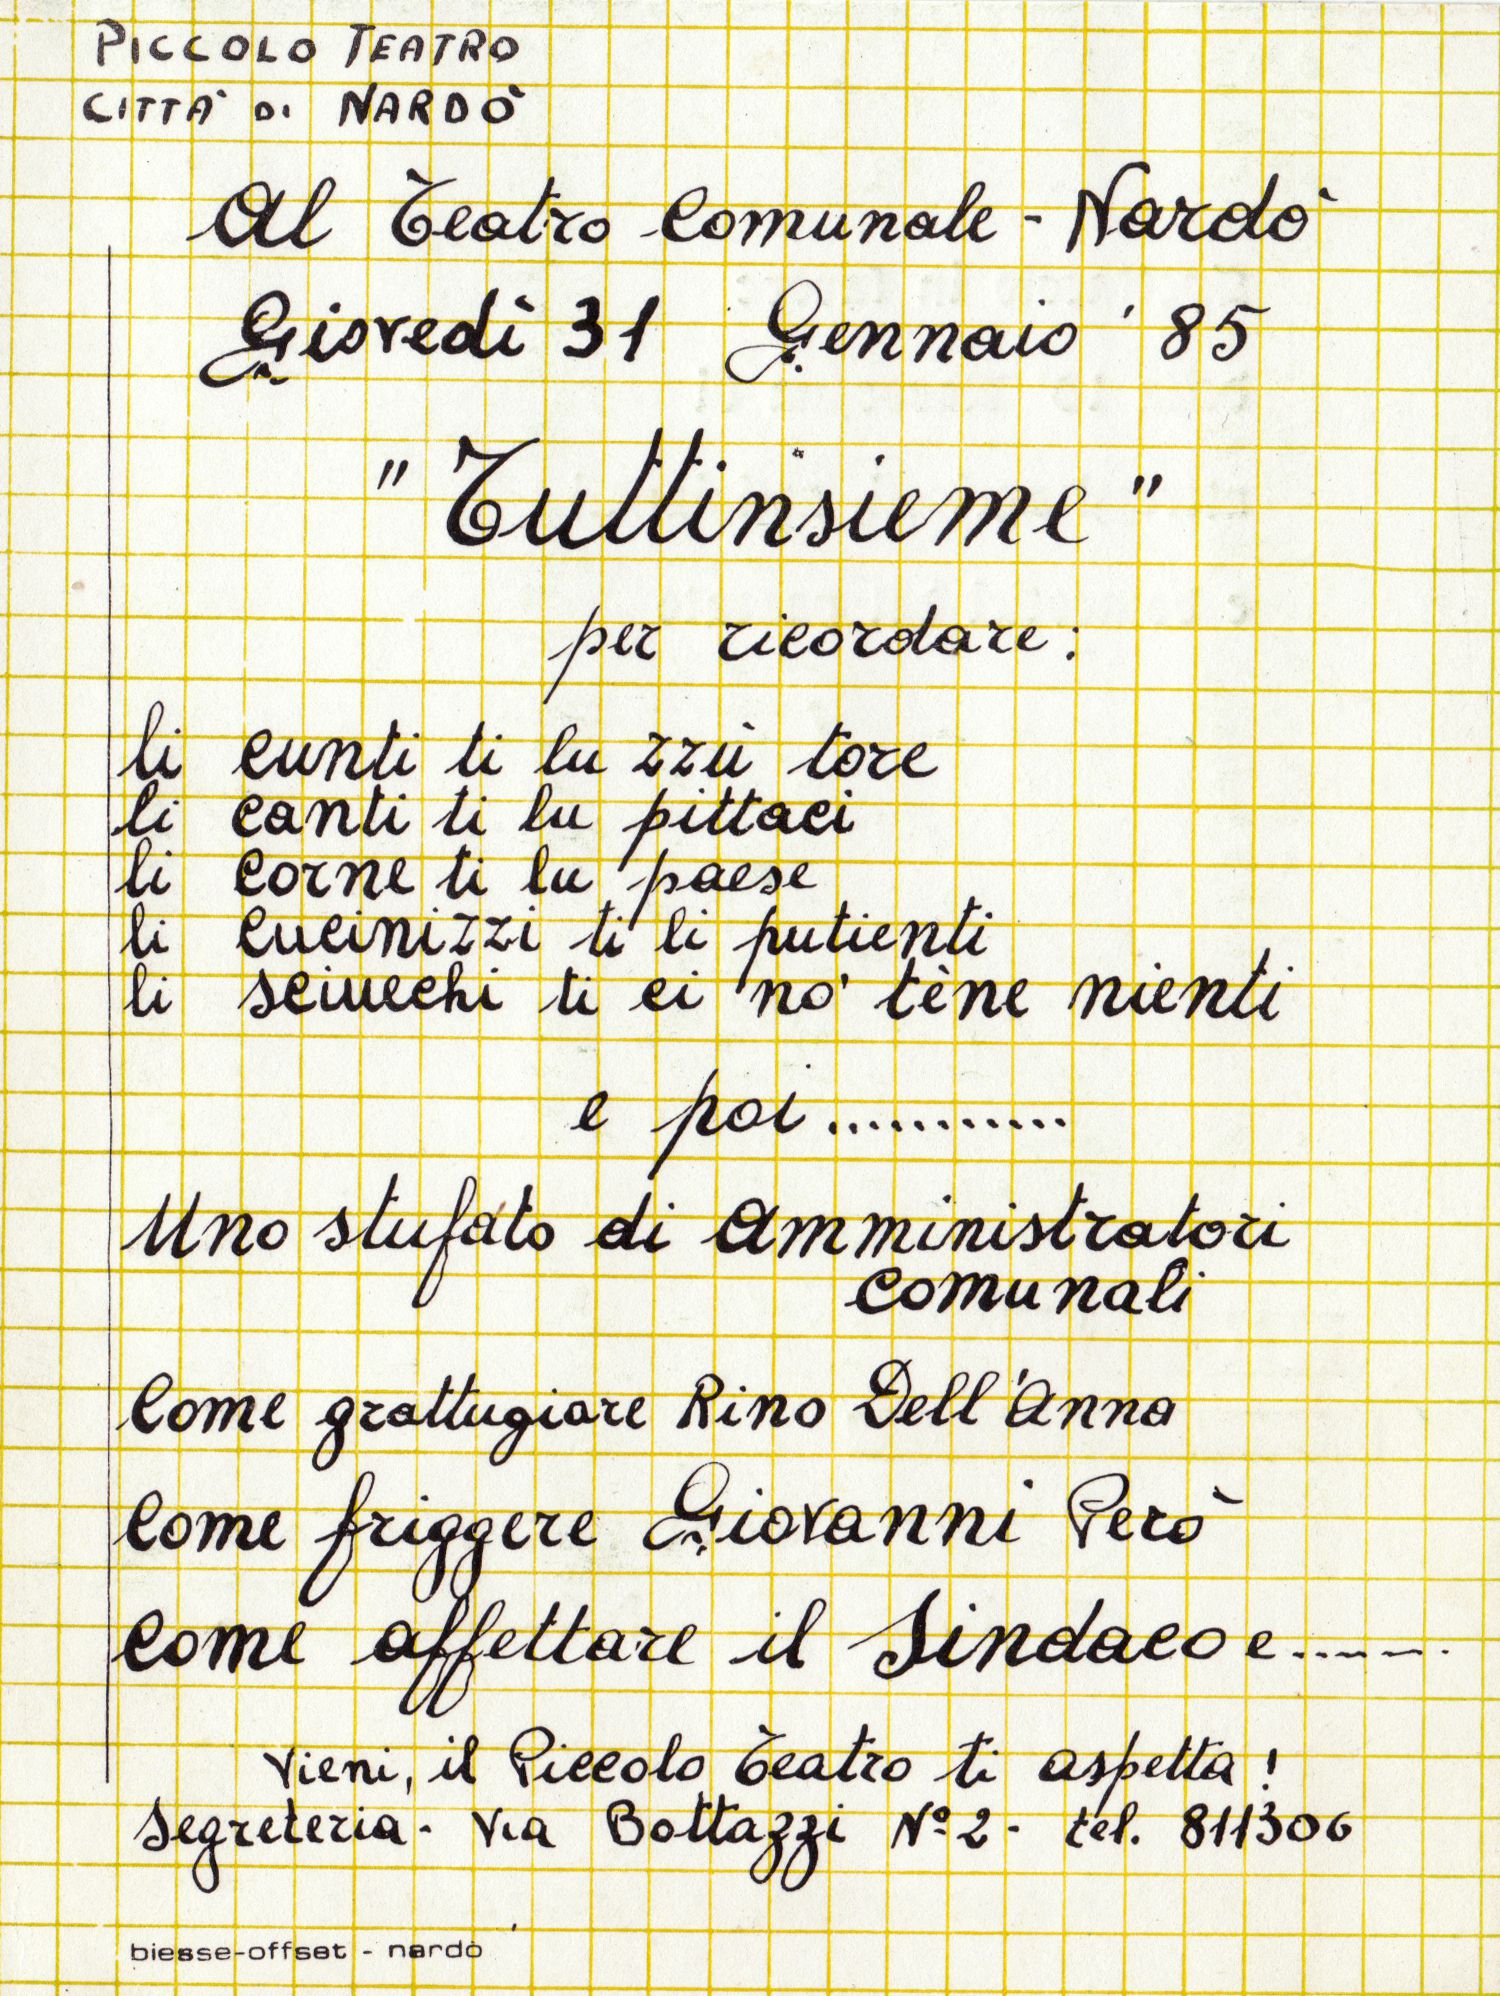 PICCOLO TEATRO
CITTA' DI NARDO'
Al Teatro Comunale - Nardo'
Giovedì 31 Gennaio '85
"Tuttinsieme"
per ricordare:
li cunti ti lu zzù tore
li canti ti lu pittaci
li corne ti lu paese
li cucinizzi ti li putienti
li sciuechi ti ci no' tène nienti
e poi...........
Uno stufato di Amministratori
comunali
Come grattugiare Rino Dell'Anna
Come friggere Giovanni Però
Come affettare il Sindaco e.......
Vieni, il Piccolo Teatro ti aspetta!
Segreteria - Via Bottazzi Nº 2 - tel. 811306
biesse-offset - nardò